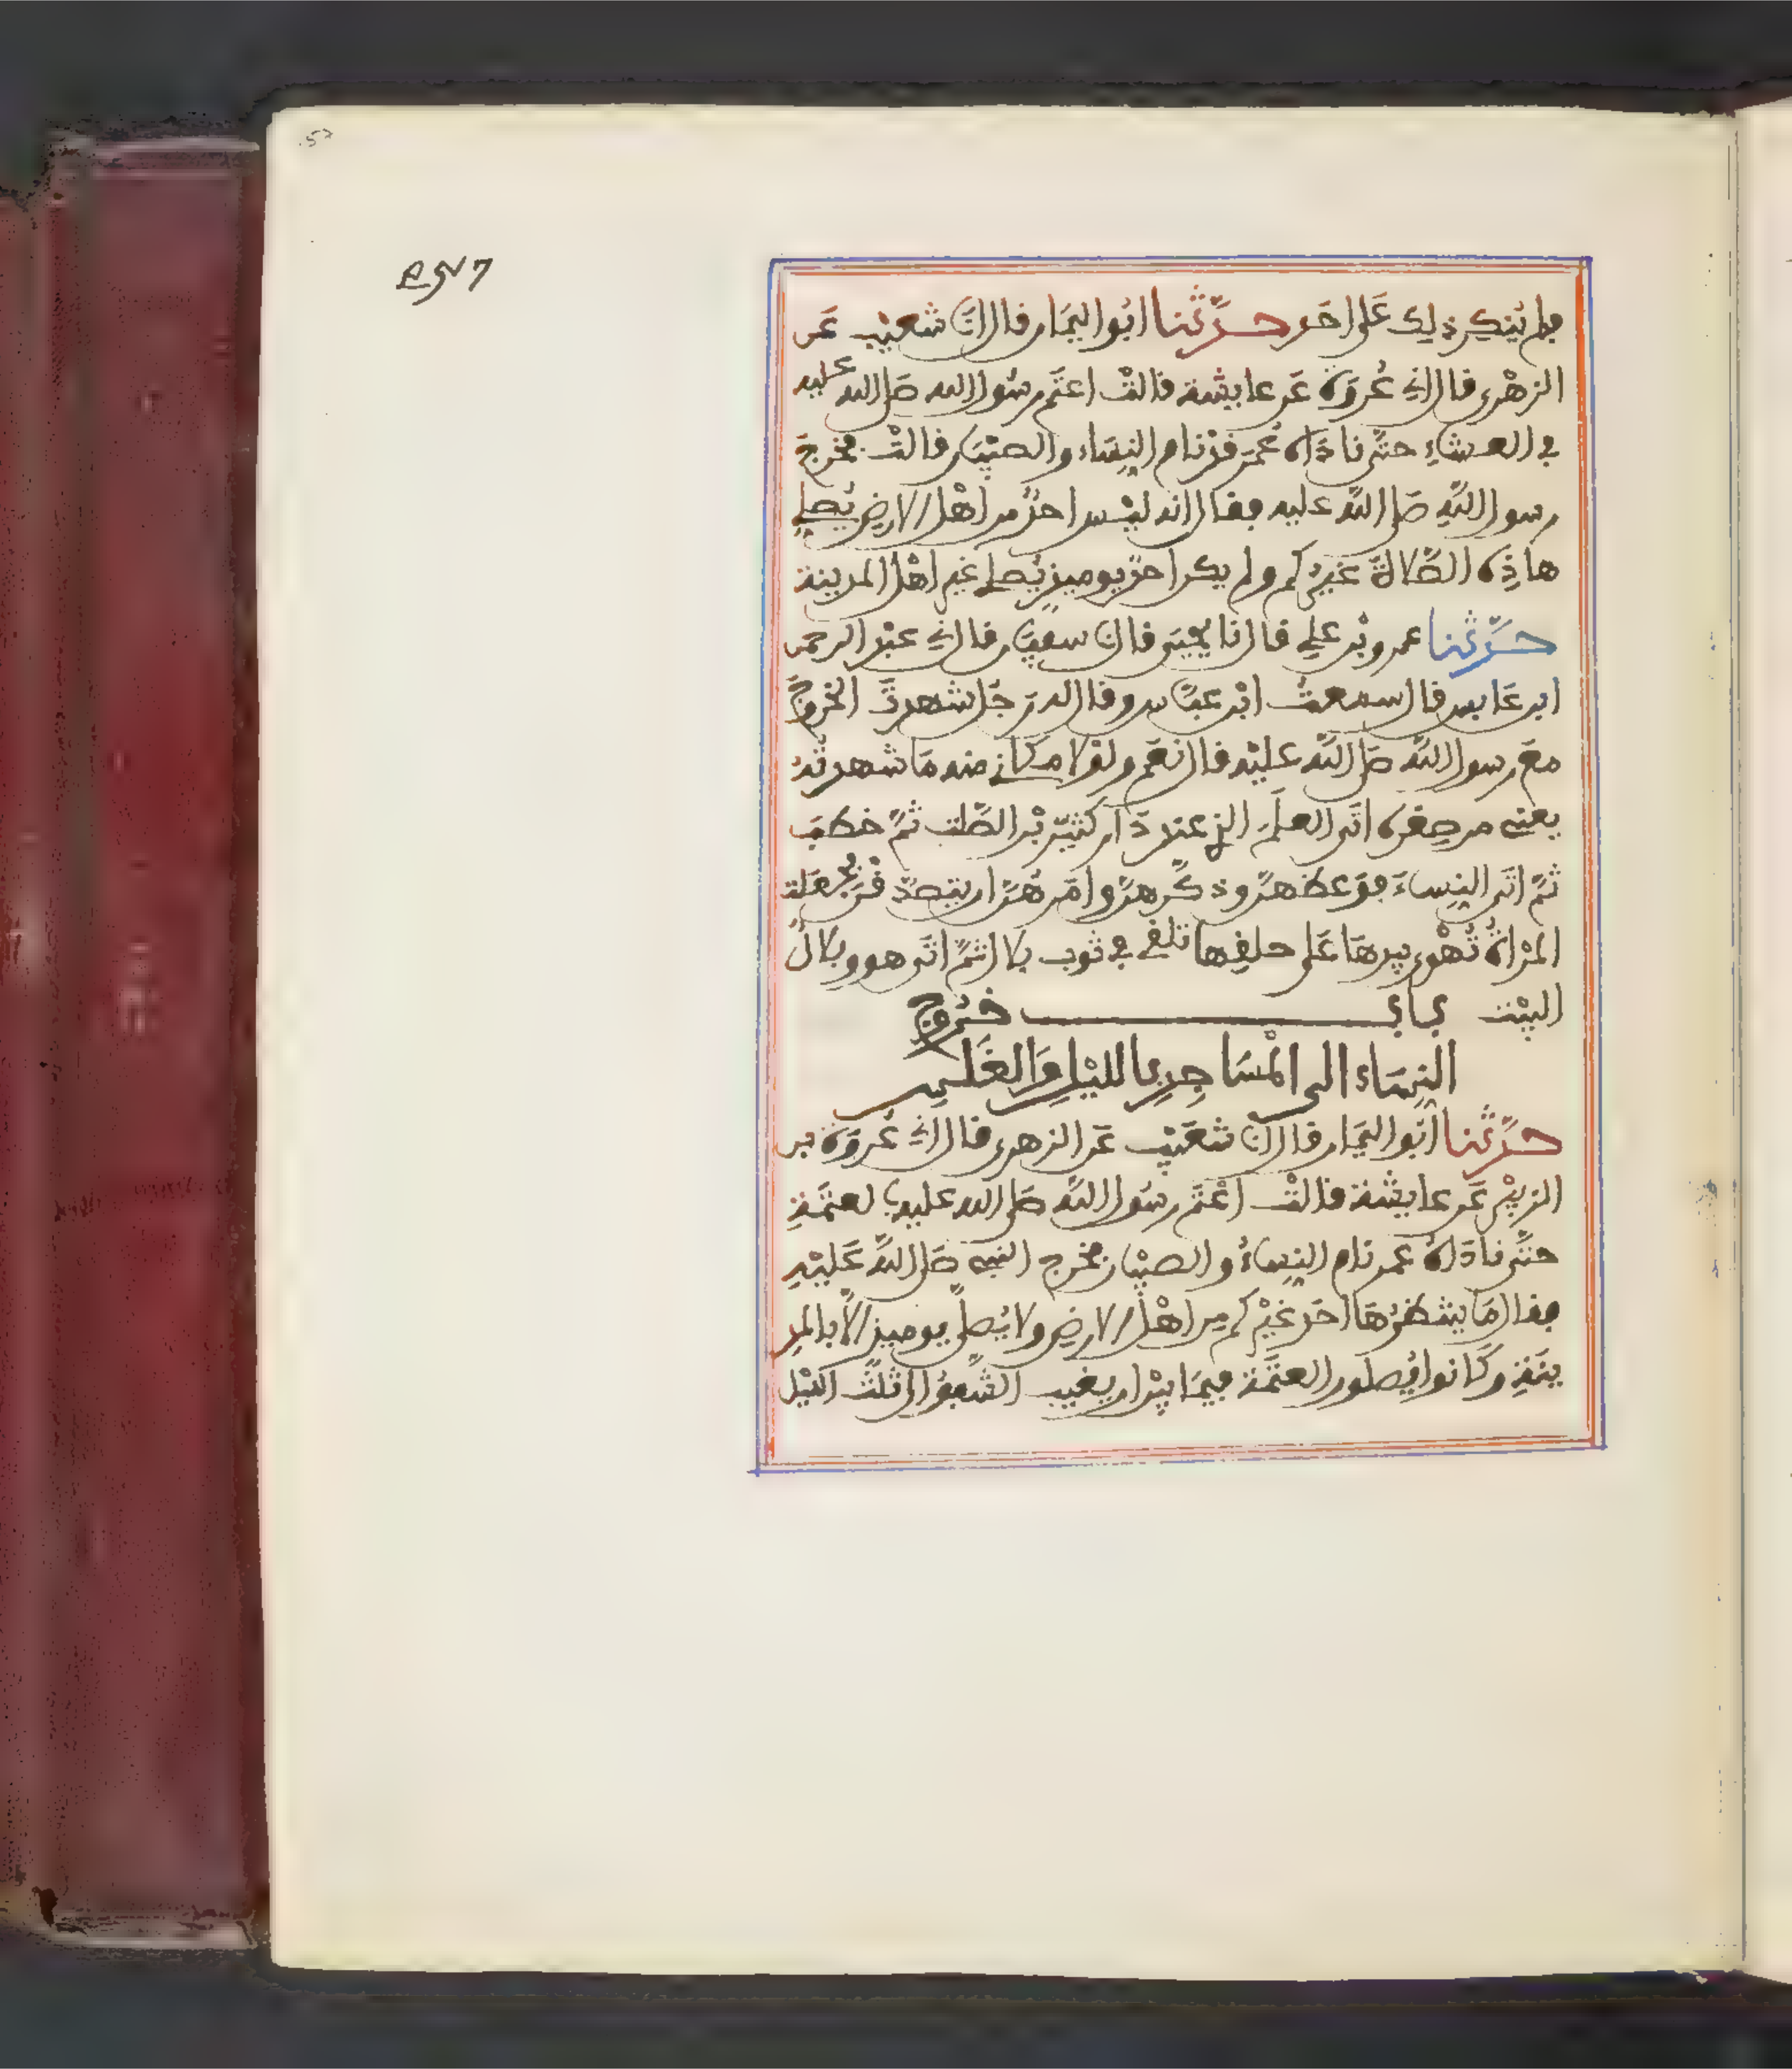 فلم ينكر ذلك على احد حدثنا ابو اليمان قال انا شعيب عن
الزهري قال اني عروة عن عايشة قالت اعتم رسول الله صلى الله عليه
في العشاء حتى ناداه عمر قد نام النساء والصبيان قالت فخرج
رسول الله صلى الله عليه فقال انه ليس احد من اهل الارض يصلي
هاذه الصلاة غيركم ولم يكن احد يوميذ يصلي غير اهل المدينة
حدثنا عمرو بن علي قال نا يحيى قال نا سفيان قال ني عبد الرحمن
ابن عابس قال سمعت ابن عباس وقال له رجل شهدت الخروج
مع رسول الله صلى الله عليه قال نعم ولولا مكاني منه ما شهدته
يعني من صغره اتى العلم الذي عند دار كثير بن الصلت ثم خطب
ثم اتى النساء فوعظهن وذكرهن وامرهن ان يتصدقن فجعلت
المراة تهوي بيدها على حلقها تلقي في ثوب بلال ثم اتى هو وبلال
البيت باب خروج
النساء الى المساجد بالليل والغلس
حدثنا ابو اليمان قال انا شعيب عن الزهري قال اني عروة بن
الزبير عن عايشة قالت اعتم رسول الله صلى الله عليه بالعتمة
حتى ناداه عمر نام النساء والصبيان فخرج النبي صلى الله عليه
فقال ما ينتظرها احد غيركم من اهل الارض ولا يصلى يوميذ الا بالمد
ينة وكانوا يصلون العتمة فيما بين ان يغيب الشفق الى ثلث الليل